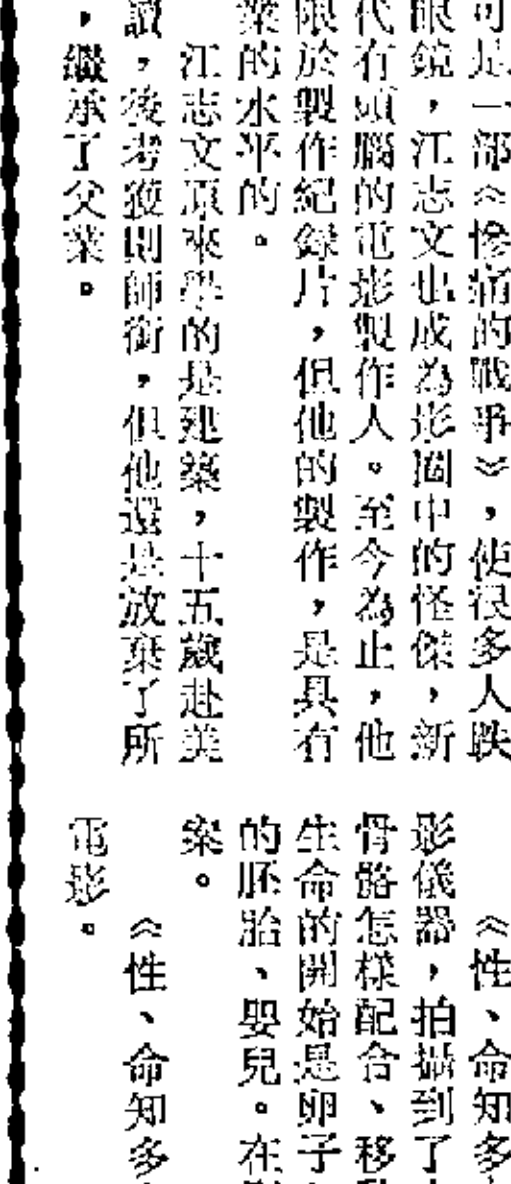 可是一部《慘痛的戰爭》，使很多人跌
眼鏡，江志文也成為影圈中的怪傑，新
代有頭腦的電影製作人。至今為止，他
限於製作紀錄片，但他的製作，是具有
業的水平的。
江志文原來學的是建築，十五歲赴美
讀，後考獲則師銜，但他還是放棄了所
，繼承了父業。
《性、命知多
影儀器，拍攝到了
骨骼怎樣配合、移
生命的開始是卵子
的胚胎、嬰兒。在
案。
《性、命知多
電影。